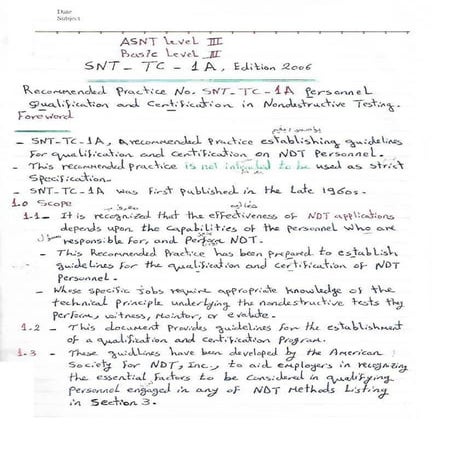 Date
Subject
ASNT Level III
Basic Level III
SNT - TC - 1A, Edition 2006
Recommended Practice No. SNT-TC-1A Personnel
Qualification and Certification in Nondestructive Testing.
Foreword
- SNT-TC-1A, A recommended Practice establishing guidelines
For qualification and certification on NDT Personnel.
- This recommended practice is not intended to be used as strict
Specification.
- SNT-TC-1A was first published in the late 1960s.
1.0 Scope
1-1- It is recognized that the effectiveness of NDT applications
depends upon the capabilities of the personnel who are
responsible for, and Perform NDT.
- This Recommended Practice has been prepared to establish
guidelines for the qualification and certification of NDT
Personnel.
- Whose specific jobs require appropriate knowledge of the
technical principle underlying the nondestructive tests they
Perform, witness, monitor, or evalute.
1.2 - This document provides guidelines for the establishment
of a qualification and certification Program.
1.3 - These guidlines have been developed by the American
Society for NDT, Inc., to aid employers in recognizing
the essential factors to be considered in qualifying
personnel engaged in any of NDT Methods Listing
in Section 3.